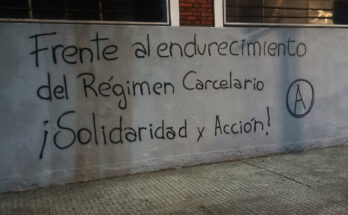 Frente al endurecimiento
del Régimen Carcelario
¡Solidaridad y Acción!
A